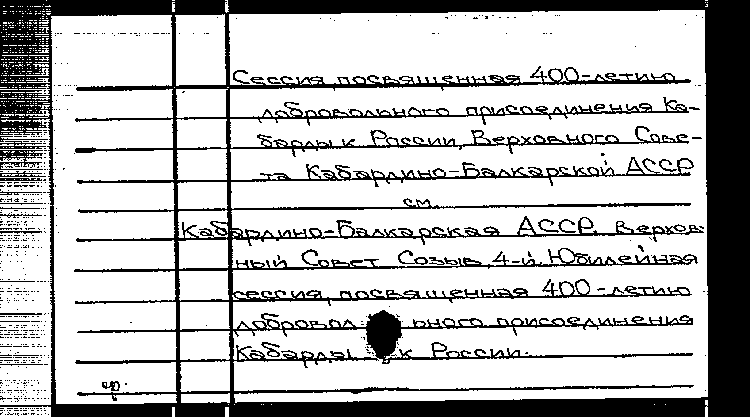 Сессия, посвященная 400-летию
добровольного присоединения Ка-
барды к России, Верховного Сове-
та Кабардино-Балкарской АССР
см.
Кабардино-Балкарская АССР. Верхов-
ный Совет Созыв, 4-й. Юбилейная
сессия, посвященная 400-летию
добровольного присоединения
Кабарды к России.